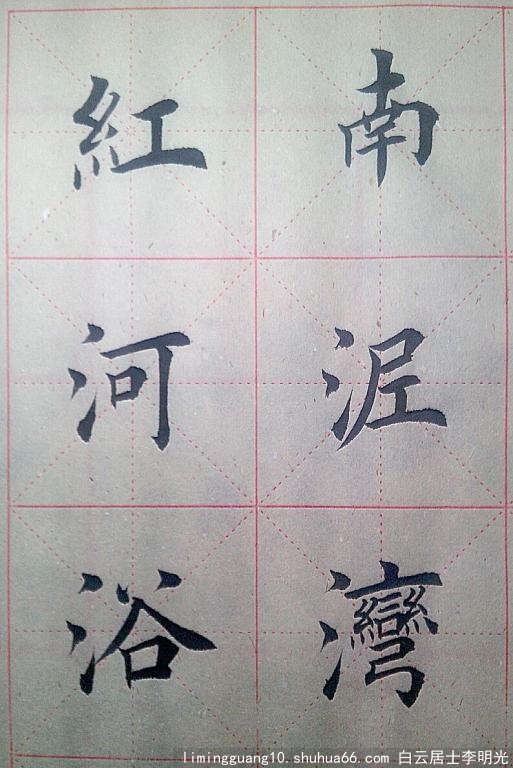 南泥灣
紅河浴
limingguang10.shuhua66.com 白云居士李明光